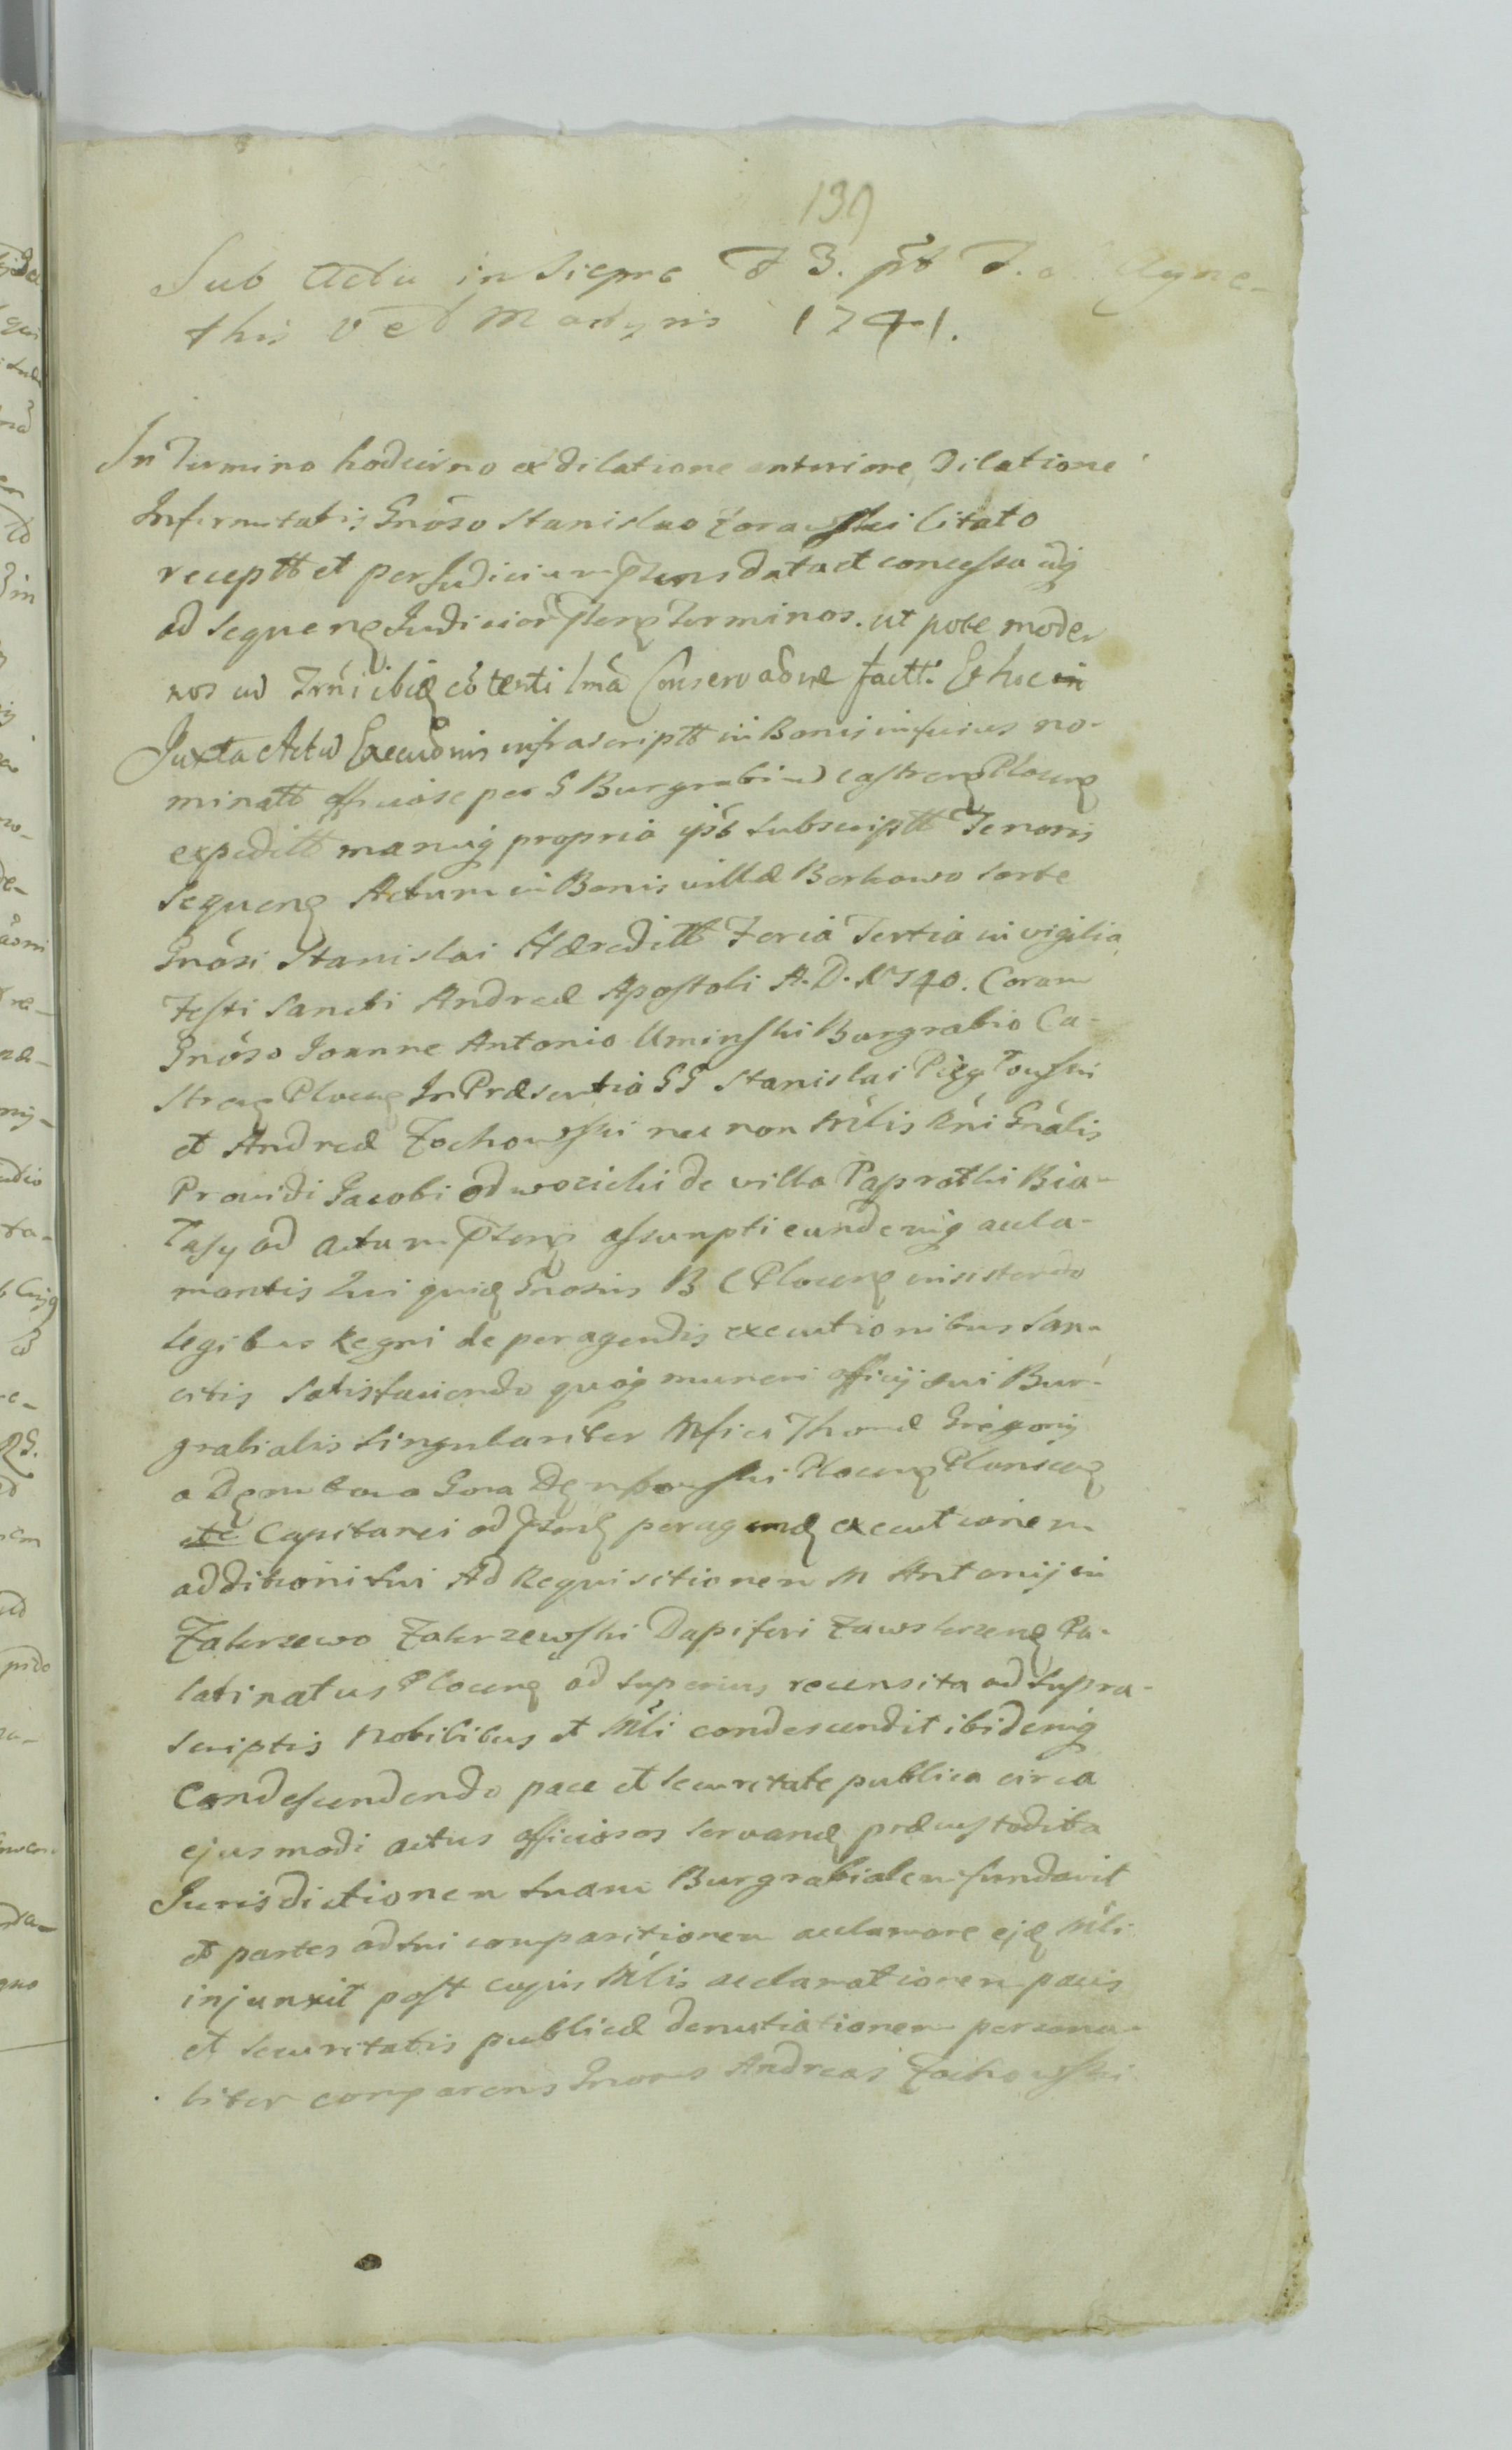 139
Sub Actu in Sieprc F 3. pt F. Agne-
this V et Martyris 1741.
In Termino hodierno ex dilatione anteriore, dilatione
Infirmitatis Gnoso Stanislao Zorawski Citato
receptt et per Judicium pnens data et concessa usq
ad sequenq Judicior pnenq Terminos. ut pote moder
nos ad Trni ibiq cotenti lma Conservaone factt. Et hoc in
Juxta Actu Executionis infrascriptt in Bonis inferius no-
minatt officiose per G Burgrabiu castrenq Plocenq
expeditt manuq propria ipso subscriptt Tenoris
sequenq Actum in Bonis villæ Borkowo sorte
Gnosi Stanislai Hæreditt Feria Tertia in vigilia
Festi Sancti Andreæ Apostoli A. D. 1740. Coram
Gnoso Joanne Antonio Uminski Burgrabio Ca-
strenq Plocenq In Præsentia GG Stanislai
et Andreæ Zochowski nec non Mlis Rni Gnalis
Providi Jacobi de villa Paprotki Bia-
ad actum pnenq assumpti eundemq acla-
mantis Qui quiq Gnosus B C Plocenq insistendo
legibus Regni de peragendis executionibus san-
citis satisfaciendo quoq muneri officij sui Bur-
grabialis singulariter Mfici Thomæ Gregorij
a Dęmbowa Gora Dęmbowski Plocenq Plonscenq
etc Capitanei ad pnenq peragenq executionem
additioni sui Ad Requisitionem M Antonij in
Zakrzewo Zakrzewski Dapiferi Zawskrzenq Pa-
latinatus Plocenq ad superius recensita ad supra-
scriptis Nobilibus et Mli condescendit ibidemq
Condescendendo pace et securitate publica circa
ejusmodi actus officiosos servanq præcustodita
Jurisdictionem suam Burgrabialem fundavit
et partes ad sui comparitionem acclamare ejq Mli
injunxit post cujus Mlis acclamationem pacis
et securitatis publicæ denuntiationem persona-
liter comparens Gnosus Andreas Zochowski